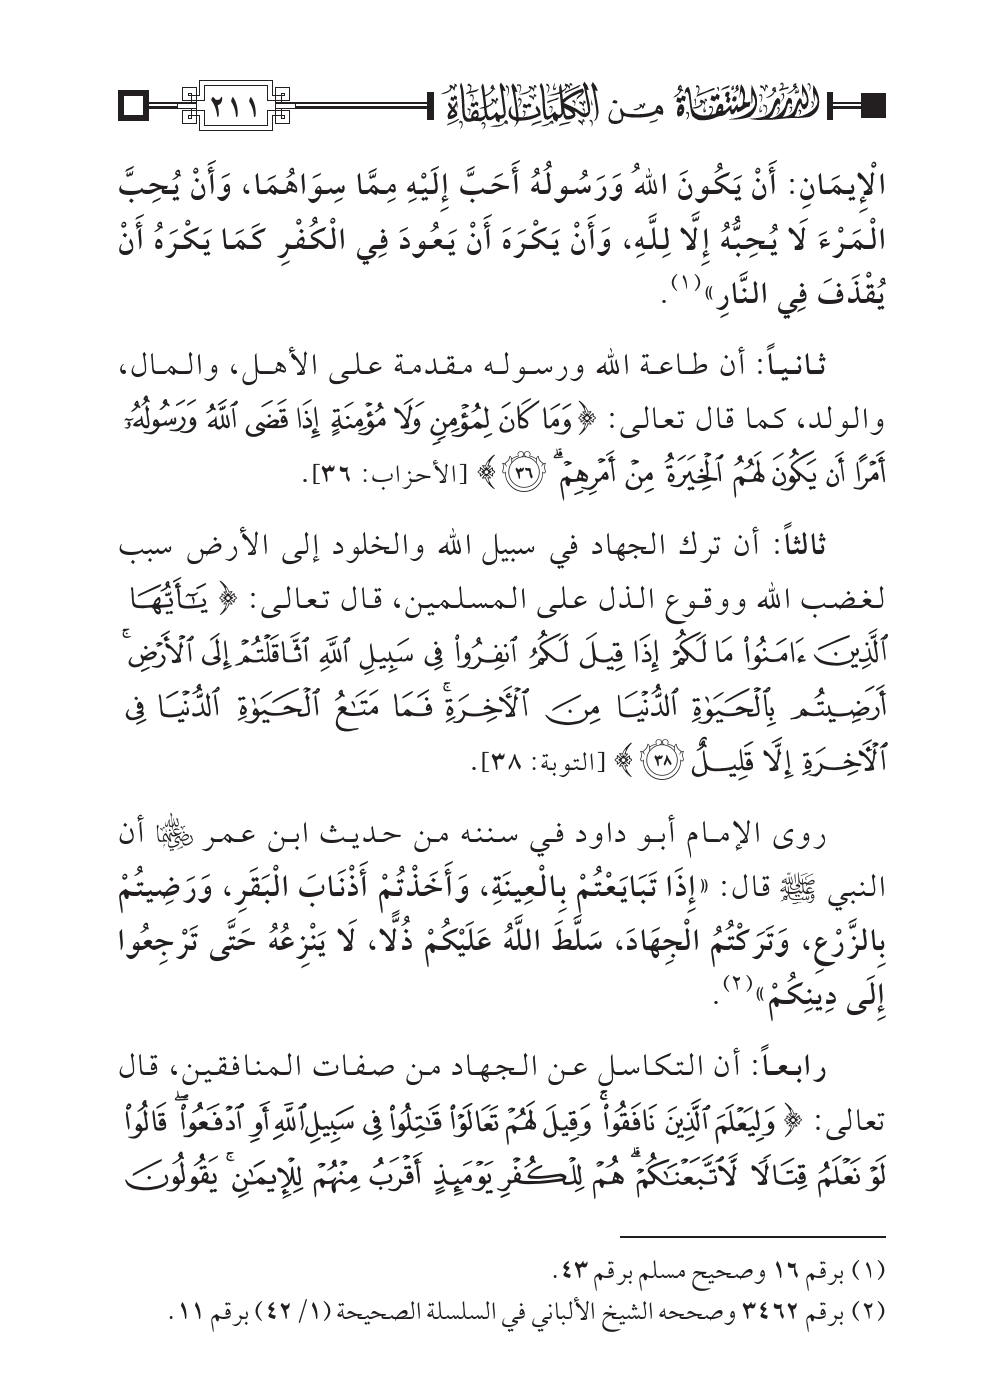 الدرر المنتقاة من الكلمات الملقاة ٢١١
الْإِيمَانِ: أَنْ يَكُونَ اللهُ وَرَسُولُهُ أَحَبَّ إِلَيْهِ مِمَّا سِوَاهُمَا، وَأَنْ يُحِبَّ
الْمَرْءَ لَا يُحِبُّهُ إِلَّا لِلَّهِ، وَأَنْ يَكْرَهَ أَنْ يَعُودَ فِي الْكُفْرِ كَمَا يَكْرَهُ أَنْ
يُقْذَفَ فِي النَّارِ»(١).
ثانياً: أن طاعة الله ورسوله مقدمة على الأهل، والمال،
والولد، كما قال تعالى: ﴿ وَمَا كَانَ لِمُؤْمِنٍ وَلَا مُؤْمِنَةٍ إِذَا قَضَى ٱللَّهُ وَرَسُولُهُۥٓ
أَمْرًا أَن يَكُونَ لَهُمُ ٱلْخِيَرَةُ مِنْ أَمْرِهِمْ ۗ ٣٦ ﴾ [الأحزاب: ٣٦].
ثالثاً: أن ترك الجهاد في سبيل الله والخلود إلى الأرض سبب
لغضب الله ووقوع الذل على المسلمين، قال تعالى: ﴿ يَـٰٓأَيُّهَا
ٱلَّذِينَ ءَامَنُوا۟ مَا لَكُمْ إِذَا قِيلَ لَكُمُ ٱنفِرُوا۟ فِى سَبِيلِ ٱللَّهِ ٱثَّاقَلْتُمْ إِلَى ٱلْأَرْضِ ۚ
أَرَضِيتُم بِٱلْحَيَوٰةِ ٱلدُّنْيَا مِنَ ٱلْـَٔاخِرَةِ ۚ فَمَا مَتَـٰعُ ٱلْحَيَوٰةِ ٱلدُّنْيَا فِى
ٱلْـَٔاخِرَةِ إِلَّا قَلِيلٌ ٣٨ ﴾ [التوبة: ٣٨].
روى الإمام أبو داود في سننه من حديث ابن عمر رضي الله عنهما أن
النبي ﷺ قال: «إِذَا تَبَايَعْتُمْ بِالْعِينَةِ، وَأَخَذْتُمْ أَذْنَابَ الْبَقَرِ، وَرَضِيتُمْ
بِالزَّرْعِ، وَتَرَكْتُمُ الْجِهَادَ، سَلَّطَ اللَّهُ عَلَيْكُمْ ذُلًّا، لَا يَنْزِعُهُ حَتَّى تَرْجِعُوا
إِلَى دِينِكُمْ»(٢).
رابعاً: أن التكاسل عن الجهاد من صفات المنافقين، قال
تعالى: ﴿ وَلِيَعْلَمَ ٱلَّذِينَ نَافَقُوا۟ ۚ وَقِيلَ لَهُمْ تَعَالَوْا۟ قَـٰتِلُوا۟ فِى سَبِيلِ ٱللَّهِ أَوِ ٱدْفَعُوا۟ ۖ قَالُوا۟
لَوْ نَعْلَمُ قِتَالًا لَّٱتَّبَعْنَـٰكُمْ ۗ هُمْ لِلْكُفْرِ يَوْمَئِذٍ أَقْرَبُ مِنْهُمْ لِلْإِيمَـٰنِ ۚ يَقُولُونَ
(١) برقم ١٦ وصحيح مسلم برقم ٤٣.
(٢) برقم ٣٤٦٢ وصححه الشيخ الألباني في السلسلة الصحيحة (١/ ٤٢) برقم ١١.